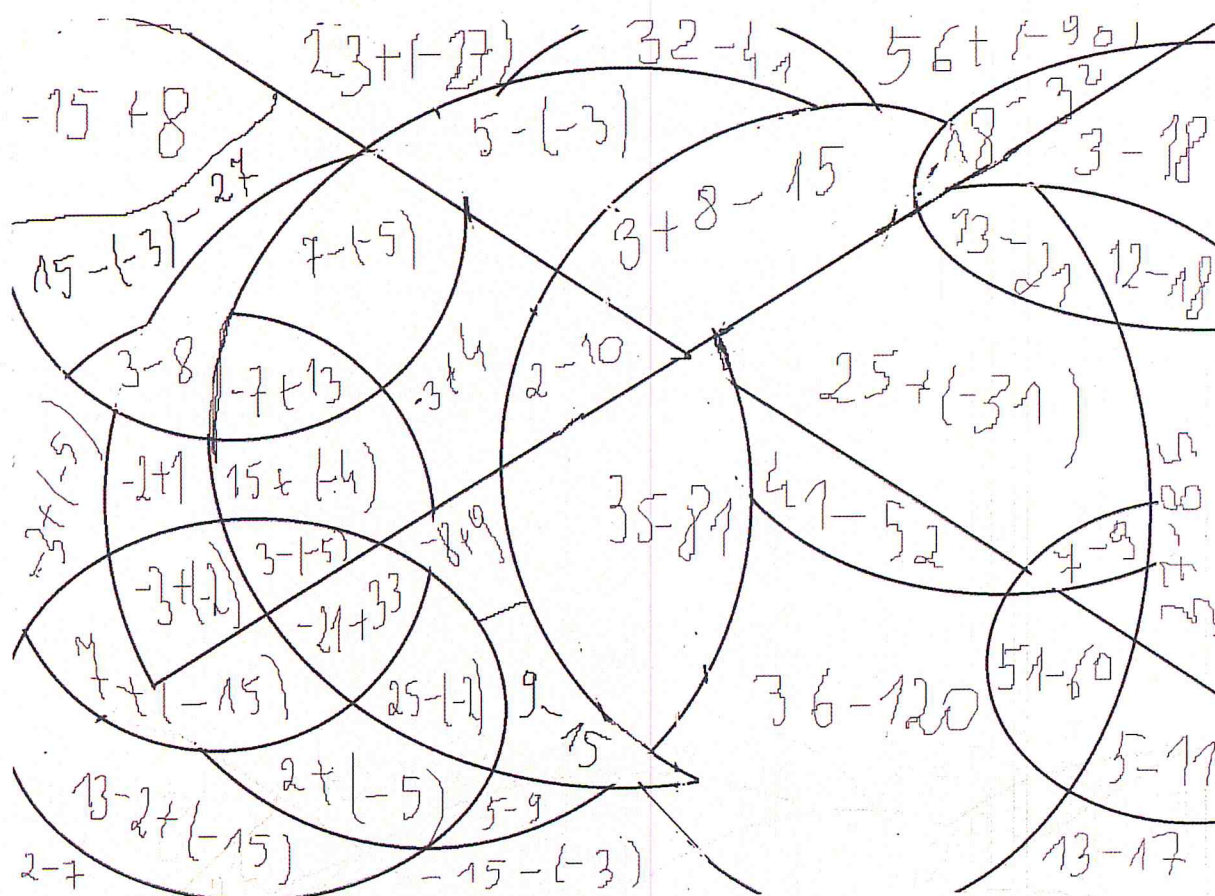 23+(-27)
32-41
56+(-90)
-15+8
5-(-3)
18-3²
3-18
15-(-3)-27
7-(-5)
3+8-15
13-21
12-18
3-8
-7+13
-3+4
2-10
25+(-31)
-3+(-5)
-2+1
15+(-4)
-8+9
35-81
41-52
7-9
3-(-5)
-3+(-2)
-21+33
7+(-15)
25-(-2)
9-15
36-120
51-60
5-11
13-2+(-15)
2+(-5)
5-9
2-7
-15-(-3)
13-17